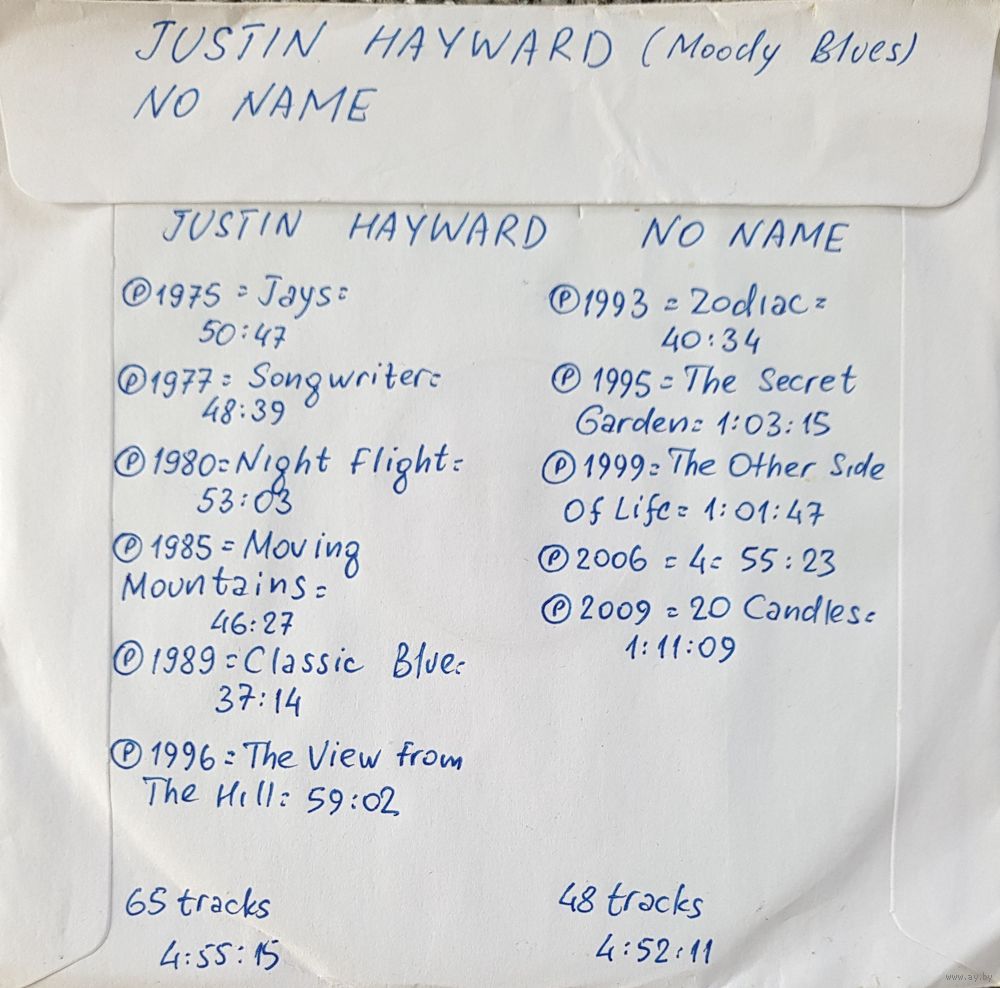 JUSTIN HAYWARD (Moody Blues)
NO NAME
JUSTIN HAYWARD
Ⓟ1975 = Jays=
50:47
Ⓟ1977= Songwriter=
48:39
Ⓟ1980=Night Flight=
53:03
Ⓟ1985=Moving
Mountains=
46:27
Ⓟ1989=Classic Blue=
37:14
Ⓟ1996=The View from
The Hill= 59:02
65 tracks
4:55:15
NO NAME
Ⓟ1993 = Zodiac=
40:34
Ⓟ 1995=The Secret
Garden= 1:03:15
Ⓟ 1999=The Other Side
Of Life= 1:01:47
Ⓟ2006 = 4= 55:23
Ⓟ2009 = 20 Candles=
1:11:09
48 tracks
4:52:11
www.ay.by